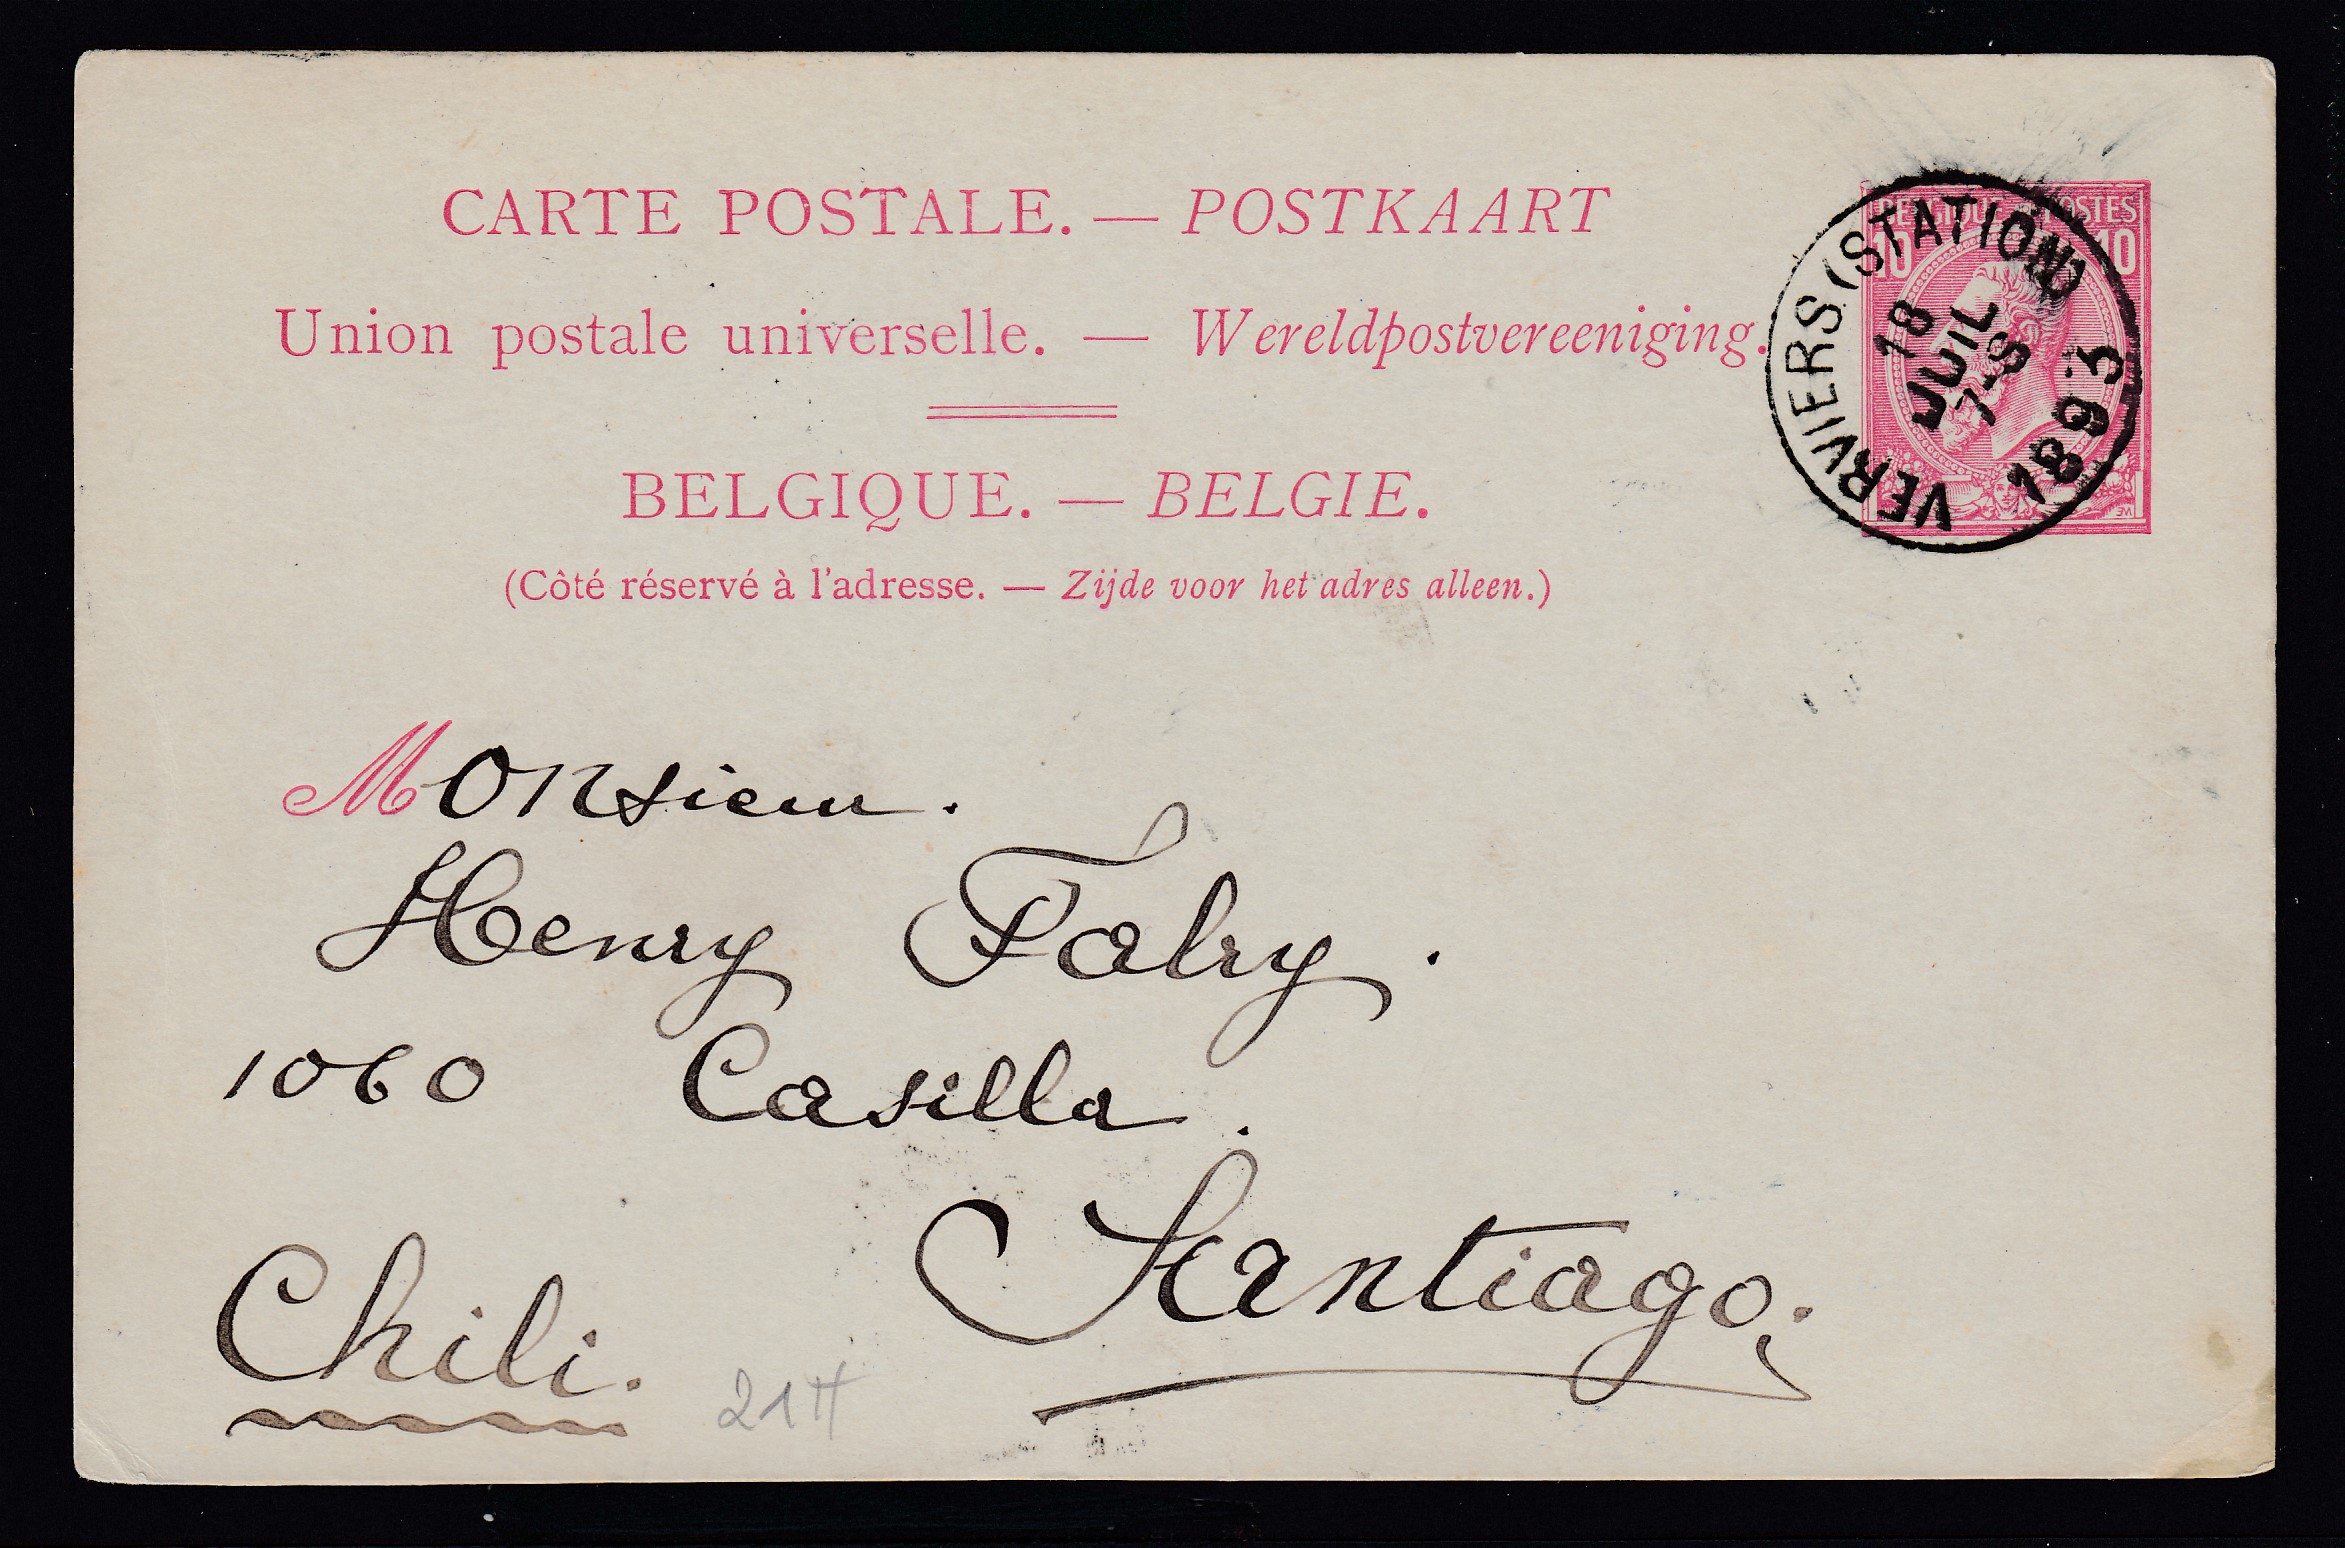 CARTE POSTALE. — POSTKAART
Union postale universelle. — Wereldpostvereeniging.
BELGIQUE. — BELGIE.
(Côté réservé à l'adresse. — Zijde voor het adres alleen.)
BELGIQUE POSTES
10 10
VERVIERS (STATION)
18
JUIL
7-S
1893
Monsieur.
Henry Fabry.
1060 Casilla.
Santiago.
Chili.